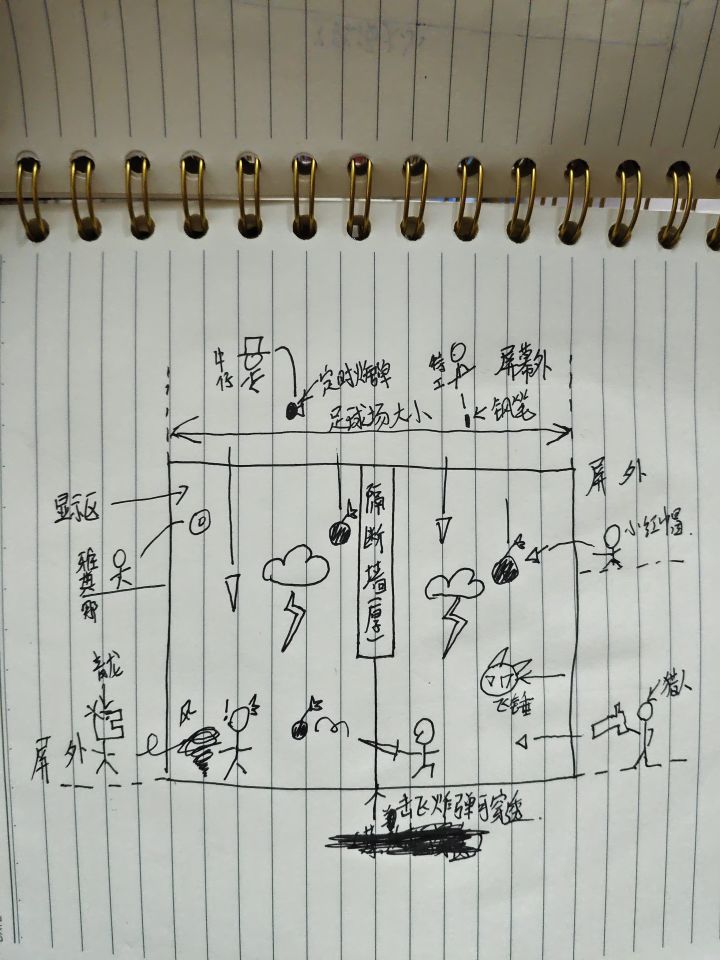 牛仔
定时炸弹
特工
屏幕外
钢笔
足球场大小
显示区
屏外
隔断墙(厚)
小红帽
雅典娜
飞锤
猎人
青龙
风
屏外
击飞炸弹可穿透